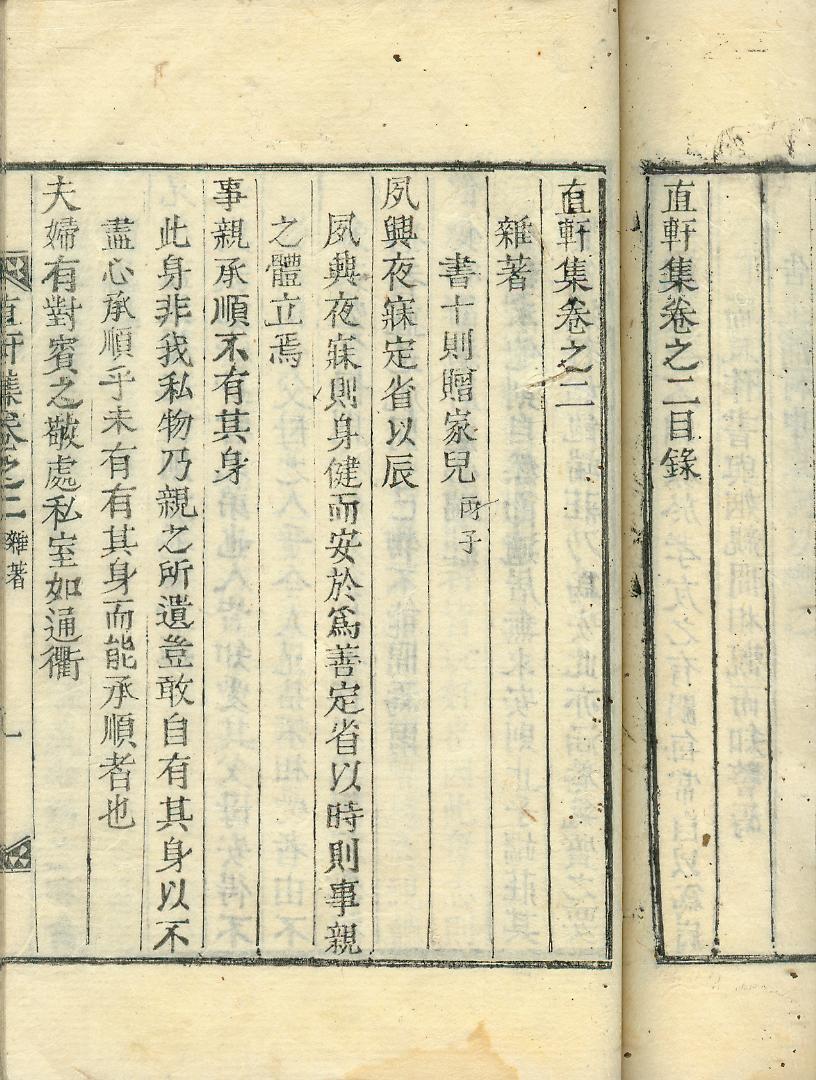 直軒集卷之二目錄
直軒集卷之二
雜著
書十則贈家兒 丙子
夙興夜寐定省以辰
夙興夜寐則身健而安於爲善定省以時則事親
之體立焉
事親承順不有其身
此身非我私物乃親之所遺豈敢自有其身以不
盡心承順乎未有有其身而能承順者也
夫婦有對賓之敬處私室如通衢
直軒集卷之二 雜著 一